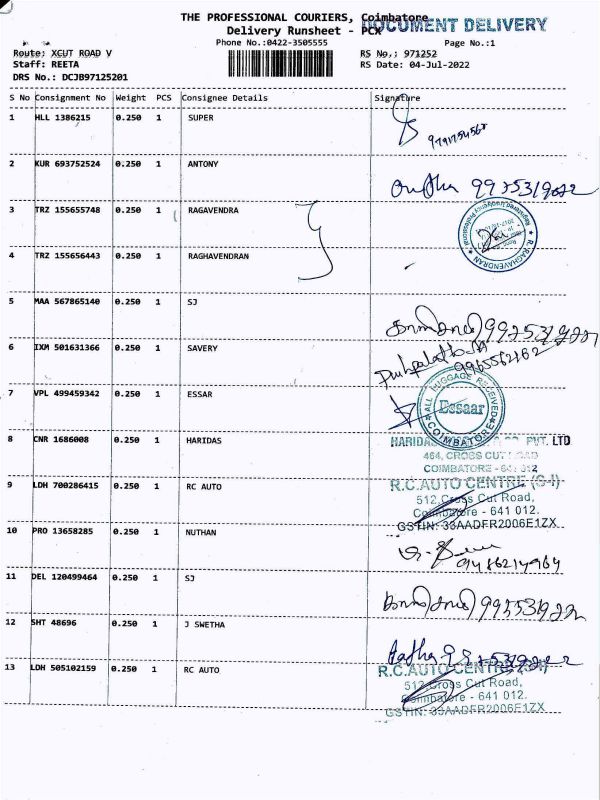 THE PROFESSIONAL COURIERS, Coimbatore
DOCUMENT DELIVERY
Delivery Runsheet - PCX
Phone No.:0422-3505555 Page No.:1
Route: XCUT ROAD V RS No.: 971252
Staff: REETA RS Date: 04-Jul-2022
DRS No.: DCJB97125201
S No Consignment No Weight PCS Consignee Details Signature
1 HLL 1386215 0.250 1 SUPER
2 KUR 693752524 0.250 1 ANTONY
3 TRZ 155655748 0.250 1 RAGAVENDRA
4 TRZ 155656443 0.250 1 RAGHAVENDRAN
R. RAGHAVENDRAN
5 MAA 567865140 0.250 1 SJ
6 IXM 501631366 0.250 1 SAVERY
7 VPL 499459342 0.250 1 ESSAR
ALL LUGGAGE RECEIVED
Essaar
COIMBATORE
8 CNR 1686008 0.250 1 HARIDAS
PVT. LTD
464, CROSS CUT ROAD
COIMBATORE - 641 012
9 LDH 700286415 0.250 1 RC AUTO
R.C.AUTO CENTRE (G-I)
512, Cross Cut Road,
Coimbatore - 641 012.
GSTIN: 33AADFR2006E1ZX
10 PRO 13658285 0.250 1 NUTHAN
11 DEL 120499464 0.250 1 SJ
12 SHT 48696 0.250 1 J SWETHA
13 LDH 505102159 0.250 1 RC AUTO
R.C.AUTO CENTRE (G-I)
512, Cross Cut Road,
Coimbatore - 641 012.
GSTIN: 33AADFR2006E1ZX